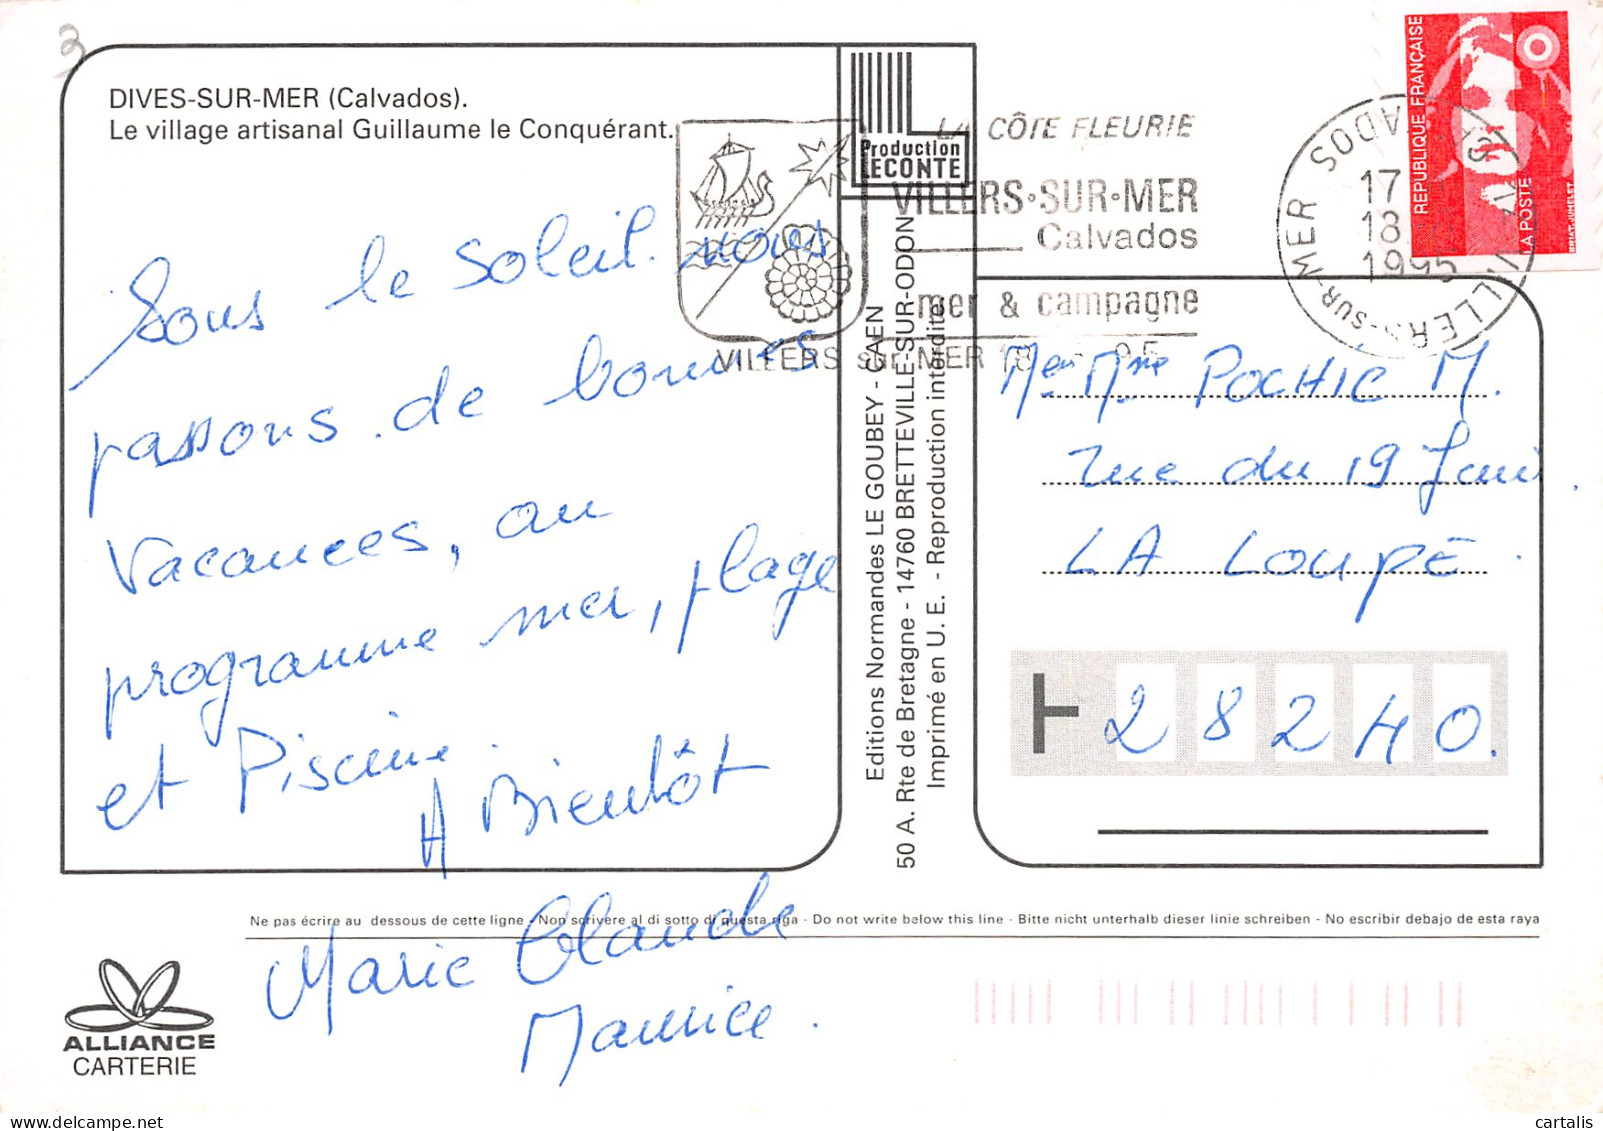 3
DIVES-SUR-MER (Calvados).
Le village artisanal Guillaume le Conquérant.
Sous le soleil nous
passons de bonnes
vacances, au
programme mer, plage
et Piscine.
A Bientôt
Marie Claude
Maurice.
Production
LECONTE
LA CÔTE FLEURIE
VILLERS•SUR•MER
Calvados
mer & campagne
VILLERS SUR MER 18
VILLERS-SUR-MER
CALVADOS
17
18
1995
RÉPUBLIQUE FRANÇAISE
LA POSTE
BRIAT-JUMELET
Editions Normandes LE GOUBEY - CAEN
50 A. Rte de Bretagne - 14760 BRETTEVILLE-SUR-ODON
Imprimé en U. E. - Reproduction interdite
Mr Mme POCHIC M.
rue du 19 Juin.
LA LOUPE.
28240.
Ne pas écrire au dessous de cette ligne - Non scrivere al di sotto di questa riga - Do not write below this line - Bitte nicht unterhalb dieser linie schreiben - No escribir debajo de esta raya
ALLIANCE
CARTERIE
cartalis